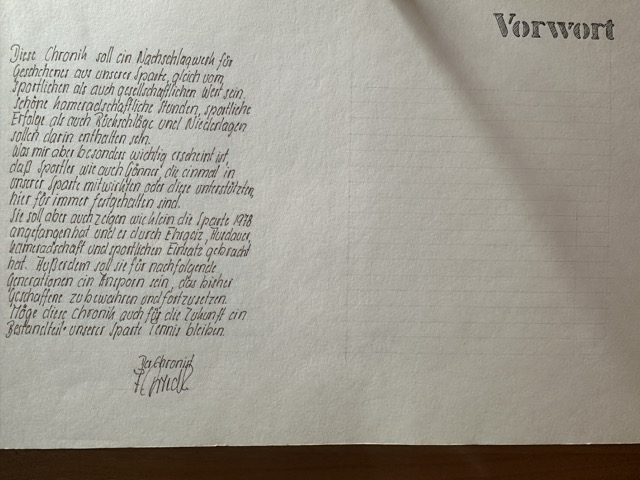 Vorwort
Diese Chronik soll ein Nachschlagwerk für
Geschehenes aus unserer Sparte, gleich vom
sportlichen als auch gesellschaftlichen Wert sein.
Schöne kameradschaftliche Stunden, sportliche
Erfolge als auch Rückschläge und Niederlagen
sollen darin enthalten sein.
Was mir aber besonders wichtig erscheint ist,
daß Sportler wie auch Gönner, die einmal in
unserer Sparte mitwirkten oder diese unterstützten,
hier für immer festgehalten sind.
Sie soll aber auch zeigen wie klein die Sparte 1978
angefangen hat und es durch Ehrgeiz, Ausdauer,
Kameradschaft und sportlichen Einsatz gebracht
hat. Außerdem soll sie für nachfolgende
Generationen ein Ansporn sein, das bisher
Geschaffene zu bewahren und fortzusetzen.
Möge diese Chronik auch für die Zukunft ein
Bestandteil unserer Sparte Tennis bleiben.
Der Chronist